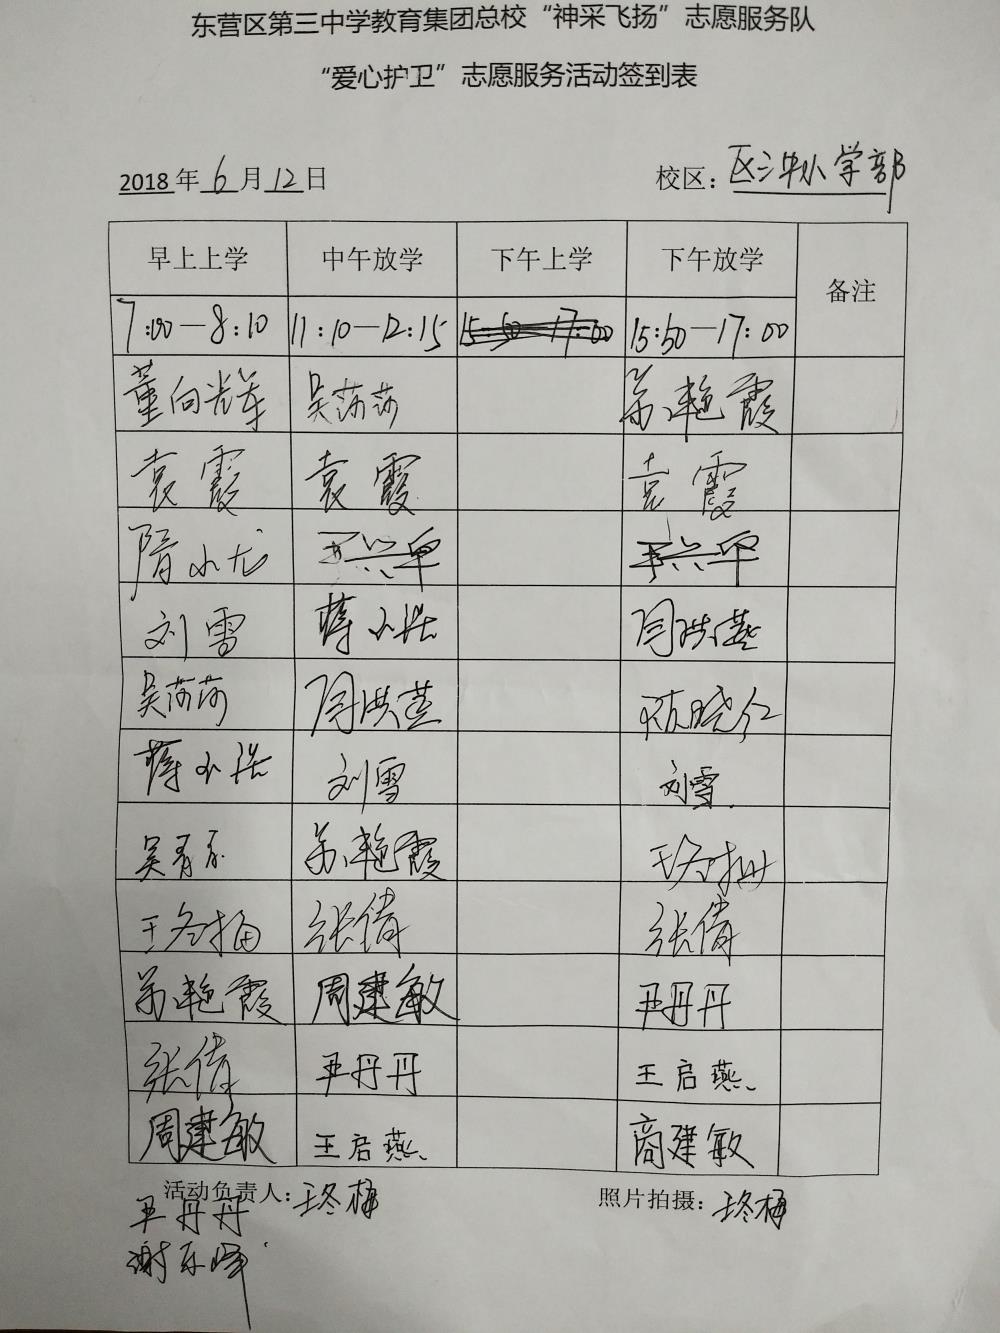 东营区第三中学教育集团总校“神采飞扬”志愿服务队
“爱心护卫”志愿服务活动签到表
2018年6月12日 校区：区三中小学部
早上上学 中午放学 下午上学 下午放学 备注
7:00—8:10 11:10—12:15 15:50—17:00 15:50—17:00
董向 吴莎莎 苏艳霞
袁霞 袁霞 袁霞
隋小龙
刘雪 蒋小 闫洪燕
吴莎莎 闫洪燕 陈晓红
蒋小 刘雪 刘雪
吴 苏艳霞 王冬梅
王冬梅 张倩 张倩
苏艳霞 周建敏 尹丹丹
张倩 尹丹丹 王启燕
周建敏 王启燕 周建敏
活动负责人：王冬梅 照片拍摄：王冬梅
尹丹丹
谢玉峰